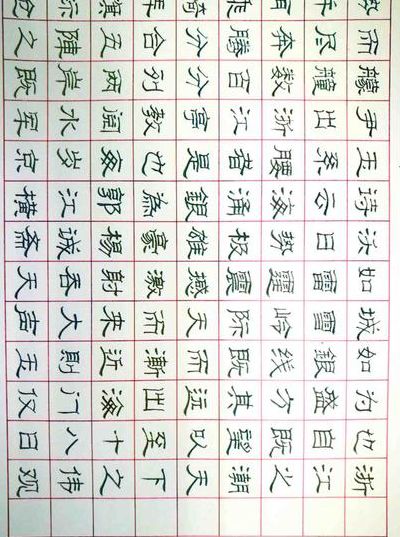 浙江之潮天下之伟观
也自既望以至十八日
为盛方其远出海门仅
如銀线既而漸近則玉
城雪岭际天而来大声
如雷霆震撼激射吞天
沃日势极雄豪楊誠斎
詩云海涌銀為郭江横
玉系腰者是也每岁京
尹出浙江亭教阅水军
艨艟数百分列两岸既
而尽奔腾分合五陳之